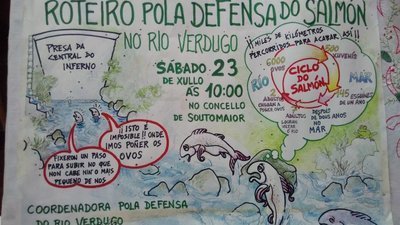 ROTEIRO POLA DEFENSA DO SALMÓN
NO RÍO VERDUGO
PRESA DA
CENTRAL DO
INFERNO
SÁBADO 23
DE XULLO ÁS 10:00
NO CONCELLO
DE SOUTOMAIOR
¡¡MILES DE KILÓMETROS
PERCORRIDOS PARA ACABAR ASÍ!!
6000
OVOS
500
RÍO
CICLO
DO
SALMÓN
MAR
2
ADULTOS
CHEGAN A
POÑER OVOS
ADULTOS
LOGRAN
DESPOIS
DE DOUS ANOS
NO
MAR
DE UN ANO
¡¡ISTO É
IMPOSIBLE!! ONDE
IMOS POÑER OS
OVOS
FIXERON UN PASO
PARA SUBIR NO QUE
NON CABE NIN O MAIS
PEQUENO DE NOS
COORDENADORA POLA DEFENSA
DO RÍO VERDUGO